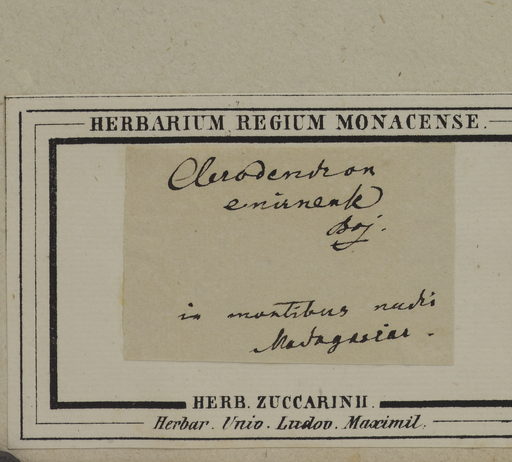 HERBARIUM REGIUM MONACENSE.
Clerodendron
emirnense
Boj.
in montibus nudis
Madagascar.
HERB. ZUCCARINII.
Herbar. Univ. Ludov. Maximil.